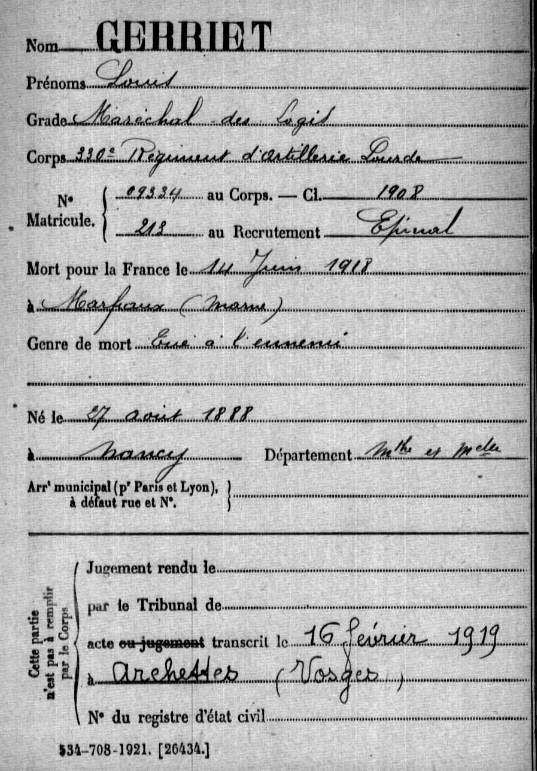 Nom GERRIET
Prénoms Louis
Grade Maréchal des Logis
Corps 330e Régiment d'Artillerie Lourde
N° Matricule. { 09334 au Corps. — Cl. 1908
213 au Recrutement Epinal
Mort pour la France le 14 Juin 1918
à Marfaux (Marne)
Genre de mort Tué à l'ennemi
Né le 27 août 1888
à Nancy Département Mthe et Melle
Arrt municipal (pr Paris et Lyon), à défaut rue et N°. }
Cette partie n'est pas à remplir par le Corps
Jugement rendu le
par le Tribunal de
acte ou jugement transcrit le 16 février 1919
à Archettes (Vosges)
N° du registre d'état civil
534-708-1921. [26434.]